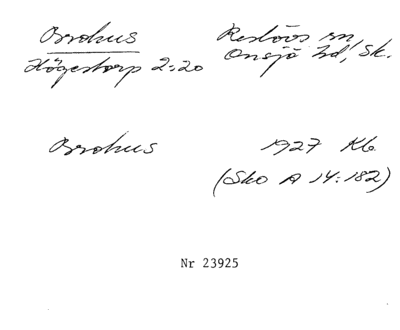 Orrahus Restövs sn,
Högestorp 2:20 Onsjö hd, Sk.
Orrahus 1927 Kb
(Sko A 14:182)
Nr 23925